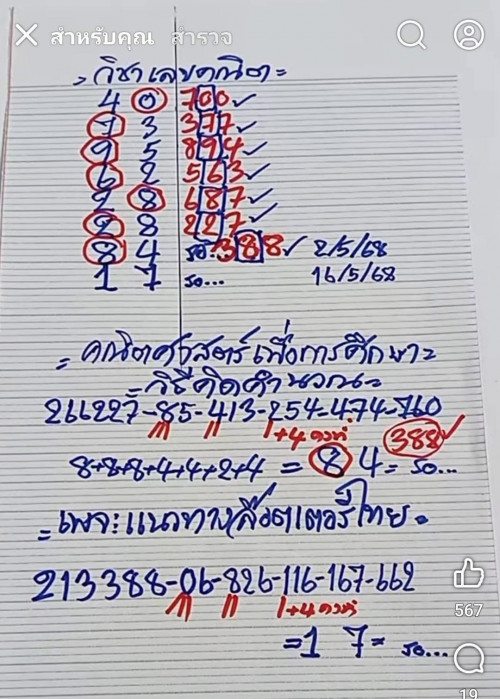 สำหรับคุณ สำรวจ
= วิชาเลขคณิต =
4 0 700 ✓
7 3 377 ✓
9 5 894 ✓
6 2 563 ✓
2 8 687 ✓
2 8 227 ✓
8 4 รอ.. 388 ✓ 2/5/68
1 7 รอ... 16/5/68
= คณิตศาสตร์เพื่อการศึกษา =
= วิธีคิดคำนวณ =
261227-85-413-254-474-760
1+4 คงที่ 388 ✓
8+8+8+4+4+2+4 = 8 4 = รอ...
= เพจะแนวทางลือตเตอรี่ไทย =
213388-06-826-116-167-662
1+4 คงที่
567
= 1 7 = รอ...
19